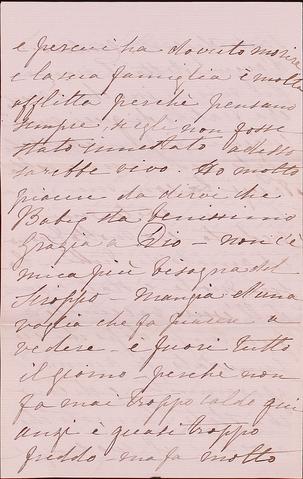 e perciò ha dovuto morire
e la sua famiglia è molto
afflitta perchè pensano
sempre, se egli non fosse
stato adesso
sarebbe vivo. Ho molto
piacere da dirvi che
Baby sta benissimo
Grazia a Dio – non c'è
mica più bisogna del
Siroppo – mangia d'una
voglia che fa piacere a
vedere – è fuori tutto
il giorno – perchè non
fa mai troppo caldo qui
anzi è quasi troppo
freddo ma fa molto